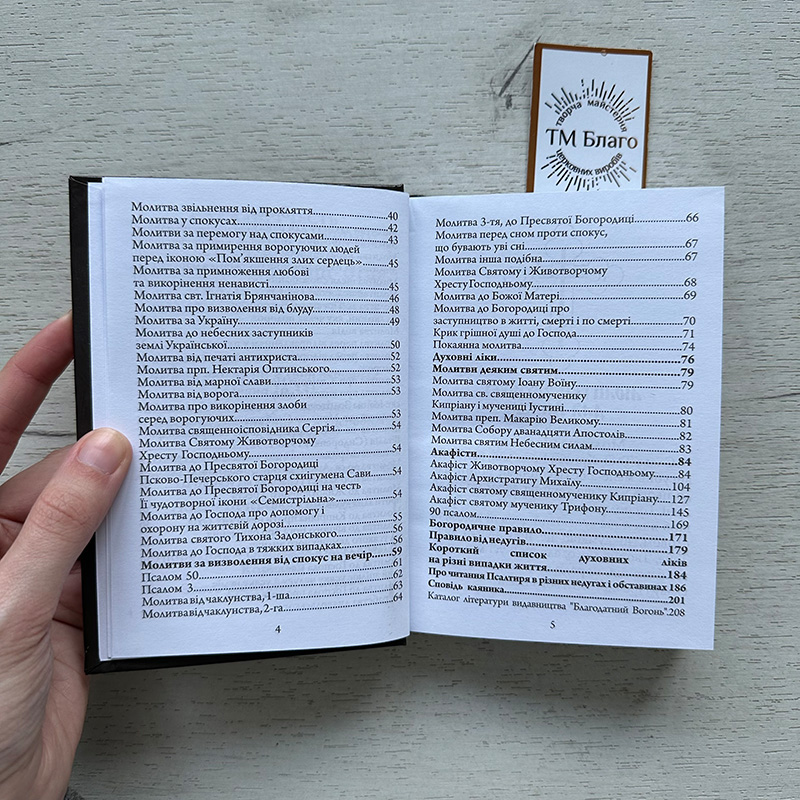 творча майстерня
ТМ Благо
церковних виробів
Молитва звільнення від прокляття....40
Молитва у спокусах....42
Молитви за перемогу над спокусами....43
Молитва за примирення ворогуючих людей
перед іконою «Пом'якшення злих сердець»....45
Молитва за примноження любові
та викорінення ненависті....45
Молитва свт. Ігнатія Брянчанінова....46
Молитва про визволення від блуду....48
Молитва за Україну....49
Молитва до небесних заступників
землі Української....50
Молитва від печаті антихриста....52
Молитва прп. Нектарія Оптинського....52
Молитва від марної слави....53
Молитва від ворога....53
Молитва про викорінення злоби
серед ворогуючих....53
Молитва священноісповідника Сергія....54
Молитва Святому Животворчому
Хресту Господньому....54
Молитва до Пресвятої Богородиці
Псково-Печерського старця схіігумена Сави....54
Молитва до Пресвятої Богородиці на честь
Її чудотворної ікони «Семистрільна»....54
Молитва до Господа про допомогу і
охорону на життєвій дорозі....55
Молитва святого Тихона Задонського....56
Молитва до Господа в тяжких випадках....56
Молитви за визволення від спокус на вечір....59
Псалом 50....61
Псалом 3....62
Молитва від чаклунства, 1-ша....63
Молитва від чаклунства, 2-га....64
4
Молитва 3-тя, до Пресвятої Богородиці....66
Молитва перед сном проти спокус,
що бувають уві сні....67
Молитва інша подібна....67
Молитва Святому і Животворчому
Хресту Господньому....68
Молитва до Божої Матері....69
Молитва до Богородиці про
заступництво в житті, смерті і по смерті....70
Крик грішної душі до Господа....71
Покаянна молитва....74
Духовні ліки....76
Молитви деяким святим....79
Молитва святому Іоану Воїну....79
Молитва св. священномученику
Кипріану і мучениці Іустині....80
Молитва преп. Макарію Великому....81
Молитва Собору дванадцяти Апостолів....82
Молитва святим Небесним силам....83
Акафісти....84
Акафіст Животворчому Хресту Господньому....84
Акафіст Архистратигу Михаїлу....104
Акафіст святому священномученику Кипріану....127
Акафіст святому мученику Трифону....145
90 псалом....169
Богородичне правило....171
Правило від недугів....179
Короткий список духовних ліків
на різні випадки життя....184
Про читання Псалтиря в різних недугах і обставинах 186
Сповідь каяника....201
Каталог літератури видавництва "Благодатний Вогонь".208
5